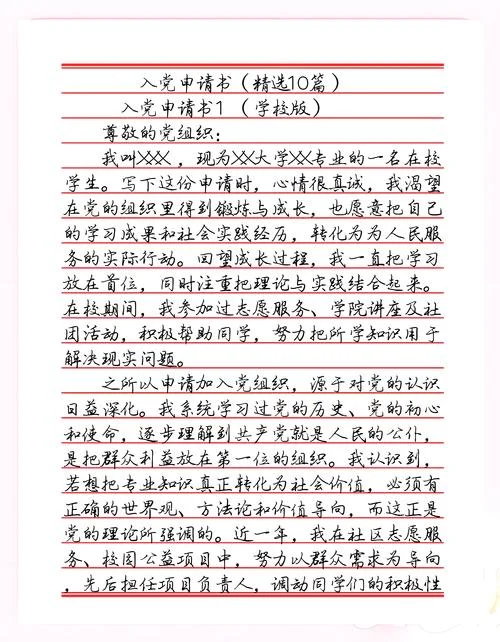 入党申请书（精选10篇）
入党申请书1（学校版）
尊敬的党组织：
我叫XXX，现为XX大学XX专业的一名在校
学生。写下这份申请时，心情很真诚，我渴望
在党的组织里得到锻炼与成长，也愿意把自己
的学习成果和社会实践经历，转化为为人民服
务的实际行动。回望成长过程，我一直把学习
放在首位，同时注重把理论与实践结合起来。
在校期间，我参加过志愿服务、学院讲座及社
团活动，积极帮助同学，努力把所学知识用于
解决现实问题。
之所以申请加入党组织，源于对党的认识
日益深化。我系统学习过党的历史、党的初心
和使命，逐步理解到共产党就是人民的公仆，
是把群众利益放在第一位的组织。我认识到，
若想把专业知识真正转化为社会价值，必须有
正确的世界观、方法论和价值导向，而这正是
党的理论所强调的。近一年，我在社区志愿服
务、校园公益项目中，努力以群众需求为导向
，先后担任项目负责人，调动同学们的积极性